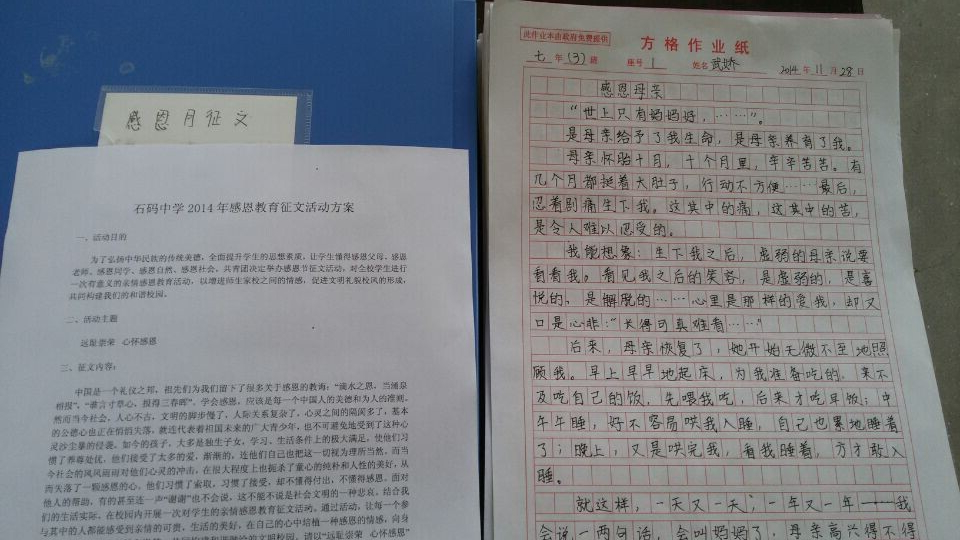 感恩月征文
石码中学 2014 年感恩教育征文活动方案
一、活动目的
为了弘扬中华民族的传统美德，全面提升学生的思想素质，让学生懂得感恩父母、感恩
老师、感恩同学、感恩自然、感恩社会，共青团决定举办感恩节征文活动，对全校学生进行
一次有意义的亲情感恩教育活动，以增进师生家校之间的情感，促进文明礼貌校风的形成，
共同构建我们的和谐校园。
二、活动主题
远耻崇荣 心怀感恩
三、征文内容：
中国是一个礼仪之邦，祖先们为我们留下了很多关于感恩的教诲：“滴水之恩，当涌泉
相报”，“谁言寸草心，报得三春晖”。学会感恩，应该是每一个中国人的美德和为人的准则。
然而当今社会，人心不古，文明的脚步慢了，人际关系复杂了，心灵之间的隔阂多了，基本
的公德心也正在悄悄失落，就连代表着祖国未来的广大青少年，也不可避免地受到了这种心
灵沙尘暴的侵袭。如今的孩子，大多是独生子女，学习、生活条件上的极大满足，使他们习
惯了养尊处优，他们接受了太多的爱，渐渐的，连他们自己也把这一切视为理所当然，而当
今社会的风风雨雨对他们心灵的冲击，在很大程度上也扼杀了童心的纯朴和人性的美好，从
而失落了一颗感恩的心。他们习惯了索取，习惯了接受，却不懂得付出，不懂得感恩。面对
他人的帮助，有的甚至连一声“谢谢”也不会说，这不能不说是社会文明的一种悲哀。结合我
们的生活实际，在校园内开展一次对学生的亲情感恩教育征文活动，通过活动，让每一个参
与其中的人都能感受到亲情的可贵，生活的美好，在自己的心中培植一种感恩的情感，向身
此作业本由政府免费提供
方格作业纸
七 年 (3) 班 座号 1 姓名 武娇 2014 年 11 月 28 日
感恩母亲
“世上只有妈妈好，……”。
是母亲给予了我生命，是母亲养育了我。
母亲怀胎十月，十个月里，辛辛苦苦。有
几个月都挺着大肚子，行动不方便……最后，
忍着剧痛生下我。这其中的痛，这其中的苦，
是令人难以忍受的。
我能想象：生下我之后，虚弱的母亲说要
看看我。看见我之后的笑容，是虚弱的，是喜
悦的，是解脱的……心里是那样的爱我，却又
口是心非：“长得可真难看……”
后来，母亲恢复了，她开始无微不至地照
顾我。早上早早地起床，为我准备吃的，来不
及吃自己的饭，先喂我吃，后来才吃早饭；中
午午睡，好不容易哄我入睡，自己也累地睡着
了；晚上，又是哄完我，看我睡着，方才敢入
睡。
就这样，一天又一天，一年又一年——我
会说一两句话，会叫妈妈了，母亲高兴得不得